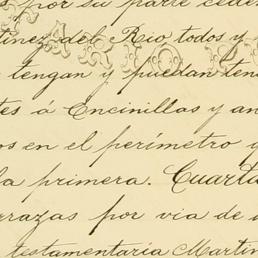 por su parte ceden
tinez del Rio, todos y
tengan y puedan ten
tes á Encinillas y an
os en el perímetro q
la primera. Cuarta
rrazas por via de
testamentaría Martin